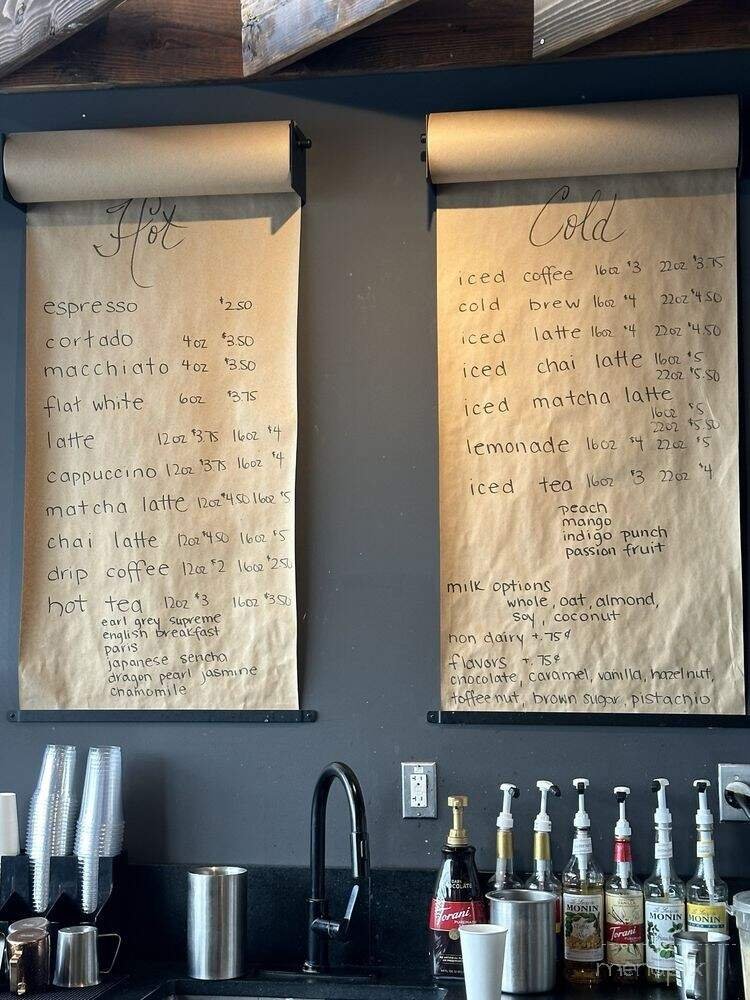 Hot
espresso $2.50
cortado 4oz $3.50
macchiato 4oz $3.50
flat white 6oz $3.75
latte 12oz $3.75 16oz $4
cappuccino 12oz $3.75 16oz $4
matcha latte 12oz $4.50 16oz $5
chai latte 12oz $4.50 16oz $5
drip coffee 12oz $2 16oz $2.50
hot tea 12oz $3 16oz $3.50
earl grey supreme
english breakfast
paris
japanese sencha
dragon pearl jasmine
chamomile
Cold
iced coffee 16oz $3 22oz $3.75
cold brew 16oz $4 22oz $4.50
iced latte 16oz $4 22oz $4.50
iced chai latte 16oz $5
22oz $5.50
iced matcha latte
16oz $5
22oz $5.50
lemonade 16oz $4 22oz $5
iced tea 16oz $3 22oz $4
peach
mango
indigo punch
passion fruit
milk options
whole, oat, almond,
soy, coconut
non dairy +.75¢
flavors +.75¢
chocolate, caramel, vanilla, hazelnut,
toffeenut, brown sugar, pistachio
Torani
MONIN
Torani
MONIN
MONIN